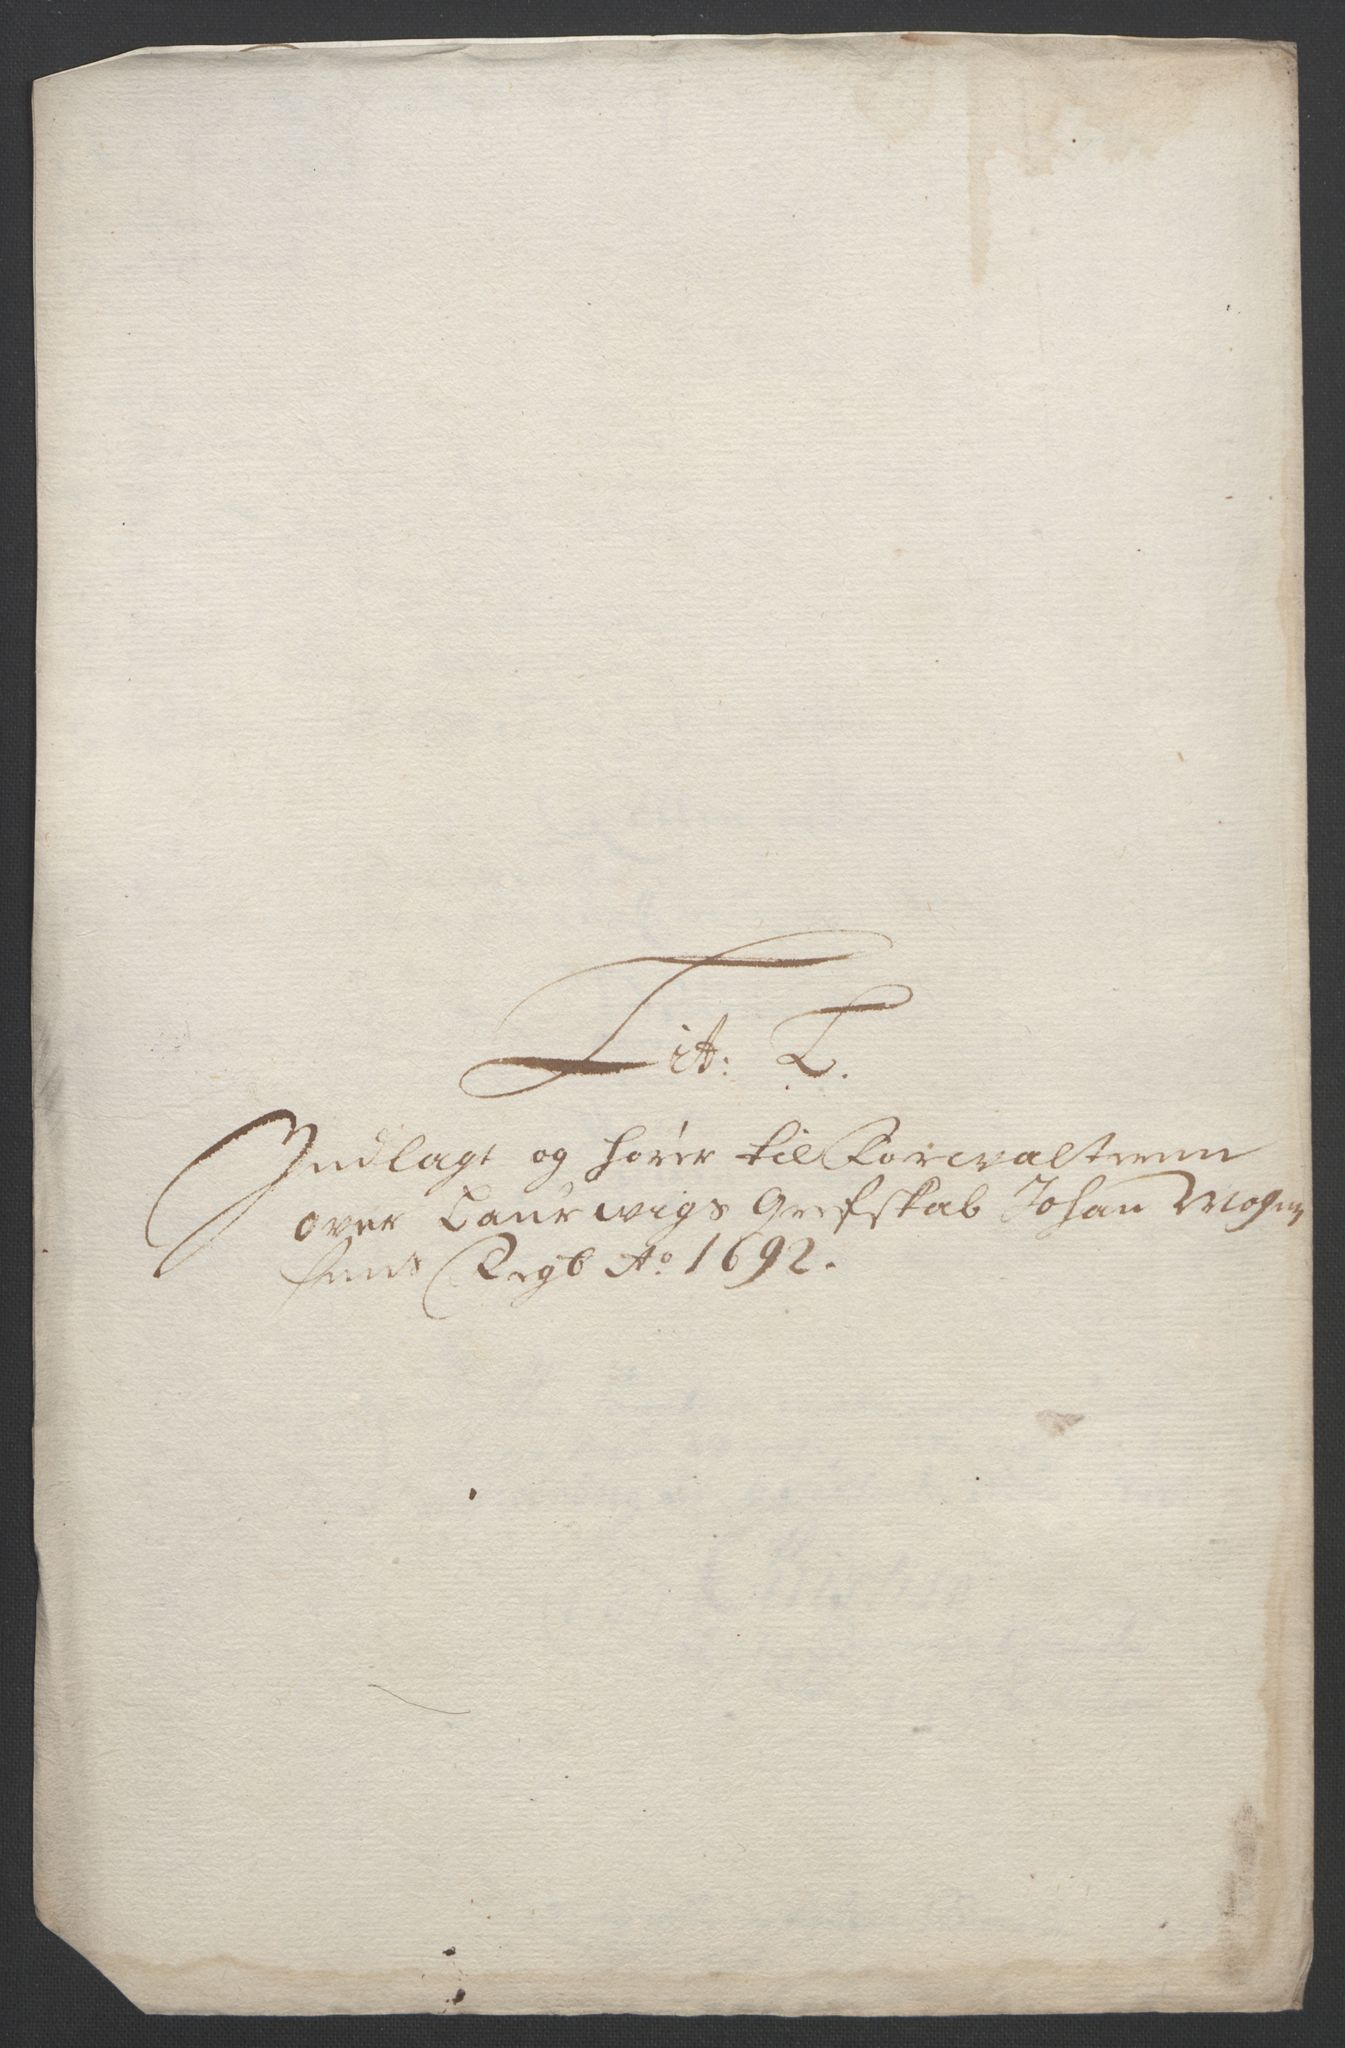 Lit: T.
Indlagt og hører til Forvalteren
over Laurwigs Grefskab Johan Mogen
sens Regb Ao 1692.